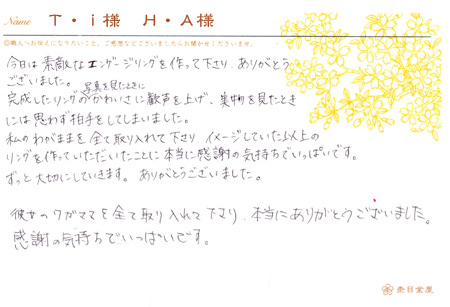 Name T・i様 H・A様
◎職人へお伝えになりたいこと、ご感想などございましたらお聞かせくださいませ。
今日は素敵なエンゲージリングを作って下さり、ありがとう
ございました。
写真を見たときに
完成したリングのかわいさに歓声を上げ、実物を見たとき
には思わず拍手をしてしまいました。
私のわがままを全て取り入れて下さり イメージしていた以上の
リングを作っていただいたことに本当に感謝の気持ちでいっぱいです。
ずっと大切にしていきます。 ありがとうございました。
彼女のワガママを全て取り入れて下さり、本当にありがとうございました。
感謝の気持ちでいっぱいです。
杢目金屋